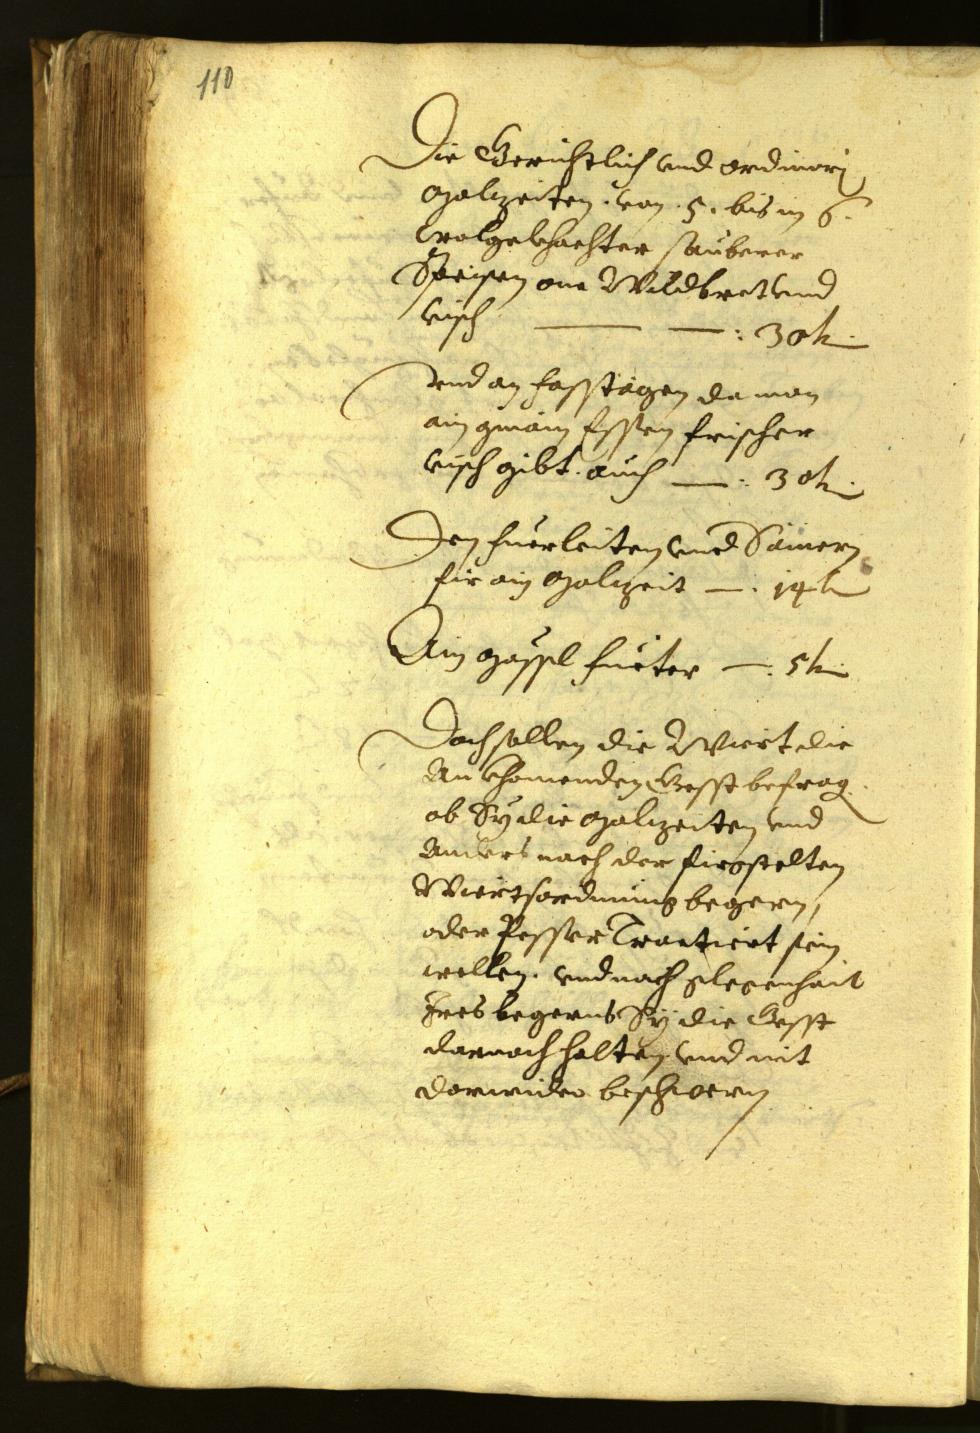 110
Die Gerichtlich und ordinari
Malzeiten. von. 5. bis in 6.
wolgekhochter sauberer
Speisen one Wildbret und
visch — — : 30 k.
Und an Fasstägen da man
ain gmain Essen frischer
visch gibt. auch — : 30 k.
Den Fuerleiten und Sämern
für ain Malzeit — : 14 k
Ain Mässl Fueter — : 5 k.
Doch sollen die Wiert die
Ankhomenden Gesst befrag.
ob Sy die Malzeiten und
Anders nach der firgstelten
Wiertsordnung begern,
oder Pesser Tractiert sein
wellen. und nach glegenhait
Ires begerns Sy die Gesst
darnach halten und nit
darwider beschwern